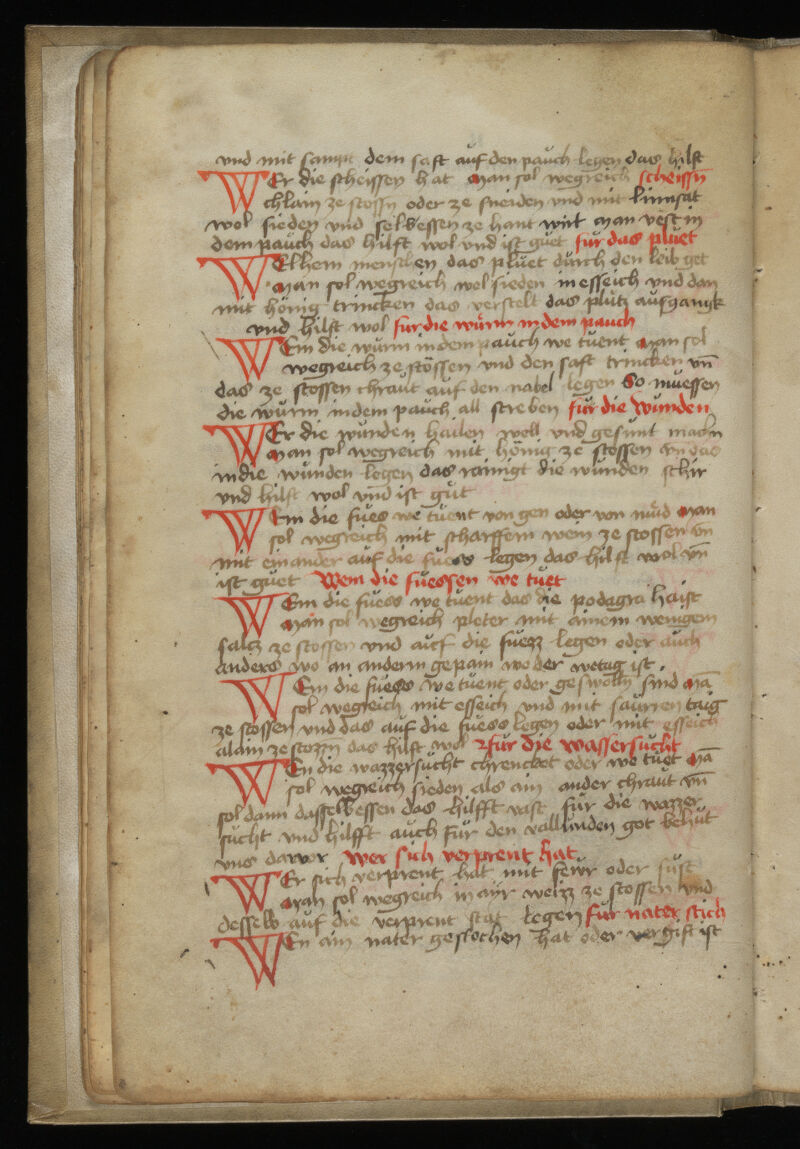 vnd mit sampt dem saft auf den pauch legen das hilft
WEr die scheissen hat Man sol wegreich scheissn̄
chlain ze stossn oder ze sneiden vnd mit linnsat
wol sieden vnd selb essen ze hant wirt man vest in
dem pauch das hilft wol vnd ist guet für das pluet
WElhem menschen das pluet durch den leib get
Man sol wegreich wol sieden in esseich vnd dan
mit hönig trincken das verstelt das plutz aufgangk
vnd hilft wol für die würm in dem pauch
WEm die würm in dem pauch we tuent Man sol
wegreich ze stössen vnd den saft trincken vn̄
das ze stossen chraut auf den nabel legen So muessen
die würm in dem pauch all sterben für die wunden
WEr die wunden hailen well vnd gesunt machn
Man sol wegreich mit hönig ze stossen vn das
in die wunden legen das rainigt die wunden schir
vnd hilft wol vnd ist gut
WEm die fues we tuent von gen oder von müd Man
sol wegreich mit scharffem wein ze stossen vn̄
mit ein ander auf die fuess legen das hilft wol vn̄
ist guet Wem die fuessen we tuet
WEm die fuess we tuent das die podagra haist
Man sol wegreich pleter mit ainem wenigem
saltz ze stossen vnd auf die fuezz legen oder auch
anders wo an anderm gepain we der wetag ist .
WEm die fuess we tuent oder geswolln sind Mā
sol wegreich mit esseich vnd mit saurren taig
ze stossen vnd das auf die fuess legen oder mit esseich
alain ze stozzn das hilft wol für die wassersucht
WEn die wazzersucht chrencket oder we tuet Mā
sol wegreich sieden als ain ander chraut vn̄
sol dann dasselb essen das hilfft vast für die wazzer
sucht vnd hilfft auch für den vallunden got behüt
vns darvor Wer sich verprent hat
WEr sich verprent hat mit fewr oder sust
Man sol wegreich in ayr weizz ze stossen vnd
desselb auf die verprent stat legen für nater stich
WEn ain nater gestochen hat oder vergift ist